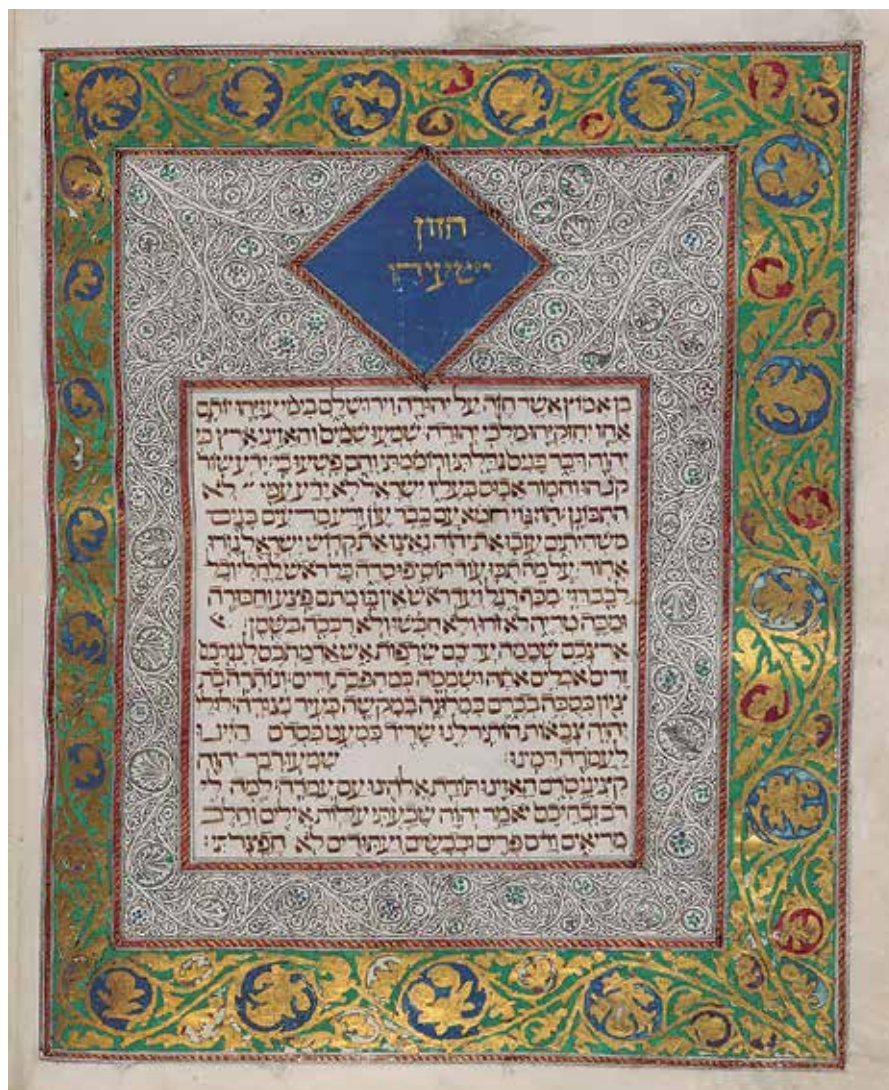 חזון
ישעיהו
בן אמוץ אשר חזה על יהודה וירושלם בימי עזיהו יותם
אחז יחזקיהו מלכי יהודה׃ שמעו שמים והאזיני ארץ כי
יהוה דבר בנים גדלתי ורוממתי והם פשעו בי׃ ידע שור
קנהו וחמור אבוס בעליו ישראל לא ידע עמי לא
התבונן׃ הוי גוי חטא עם כבד עון זרע מרעים בנים
משחיתים עזבו את יהוה נאצו את קדוש ישראל נזרו
אחור׃ על מה תכו עוד תוסיפו סרה כל ראש לחלי וכל
לבב דוי׃ מכף רגל ועד ראש אין בו מתם פצע וחבורה
ומכה טריה לא זרו ולא חבשו ולא רככה בשמן׃
ארצכם שממה עריכם שרפות אש אדמתכם לנגדכם
זרים אכלים אתה ושממה כמהפכת זרים׃ ונותרה בת
ציון כסכה בכרם כמלונה במקשה כעיר נצורה׃ לולי
יהוה צבאות הותיר לנו שריד כמעט כסדם היינו
לעמרה דמינו׃ שמעו דבר יהוה
קציני סדם האזינו תורת אלהינו עם עמרה׃ למה לי
רב זבחיכם יאמר יהוה שבעתי עלות אילים וחלב
מריאים ודם פרים וכבשים ועתודים לא חפצתי׃